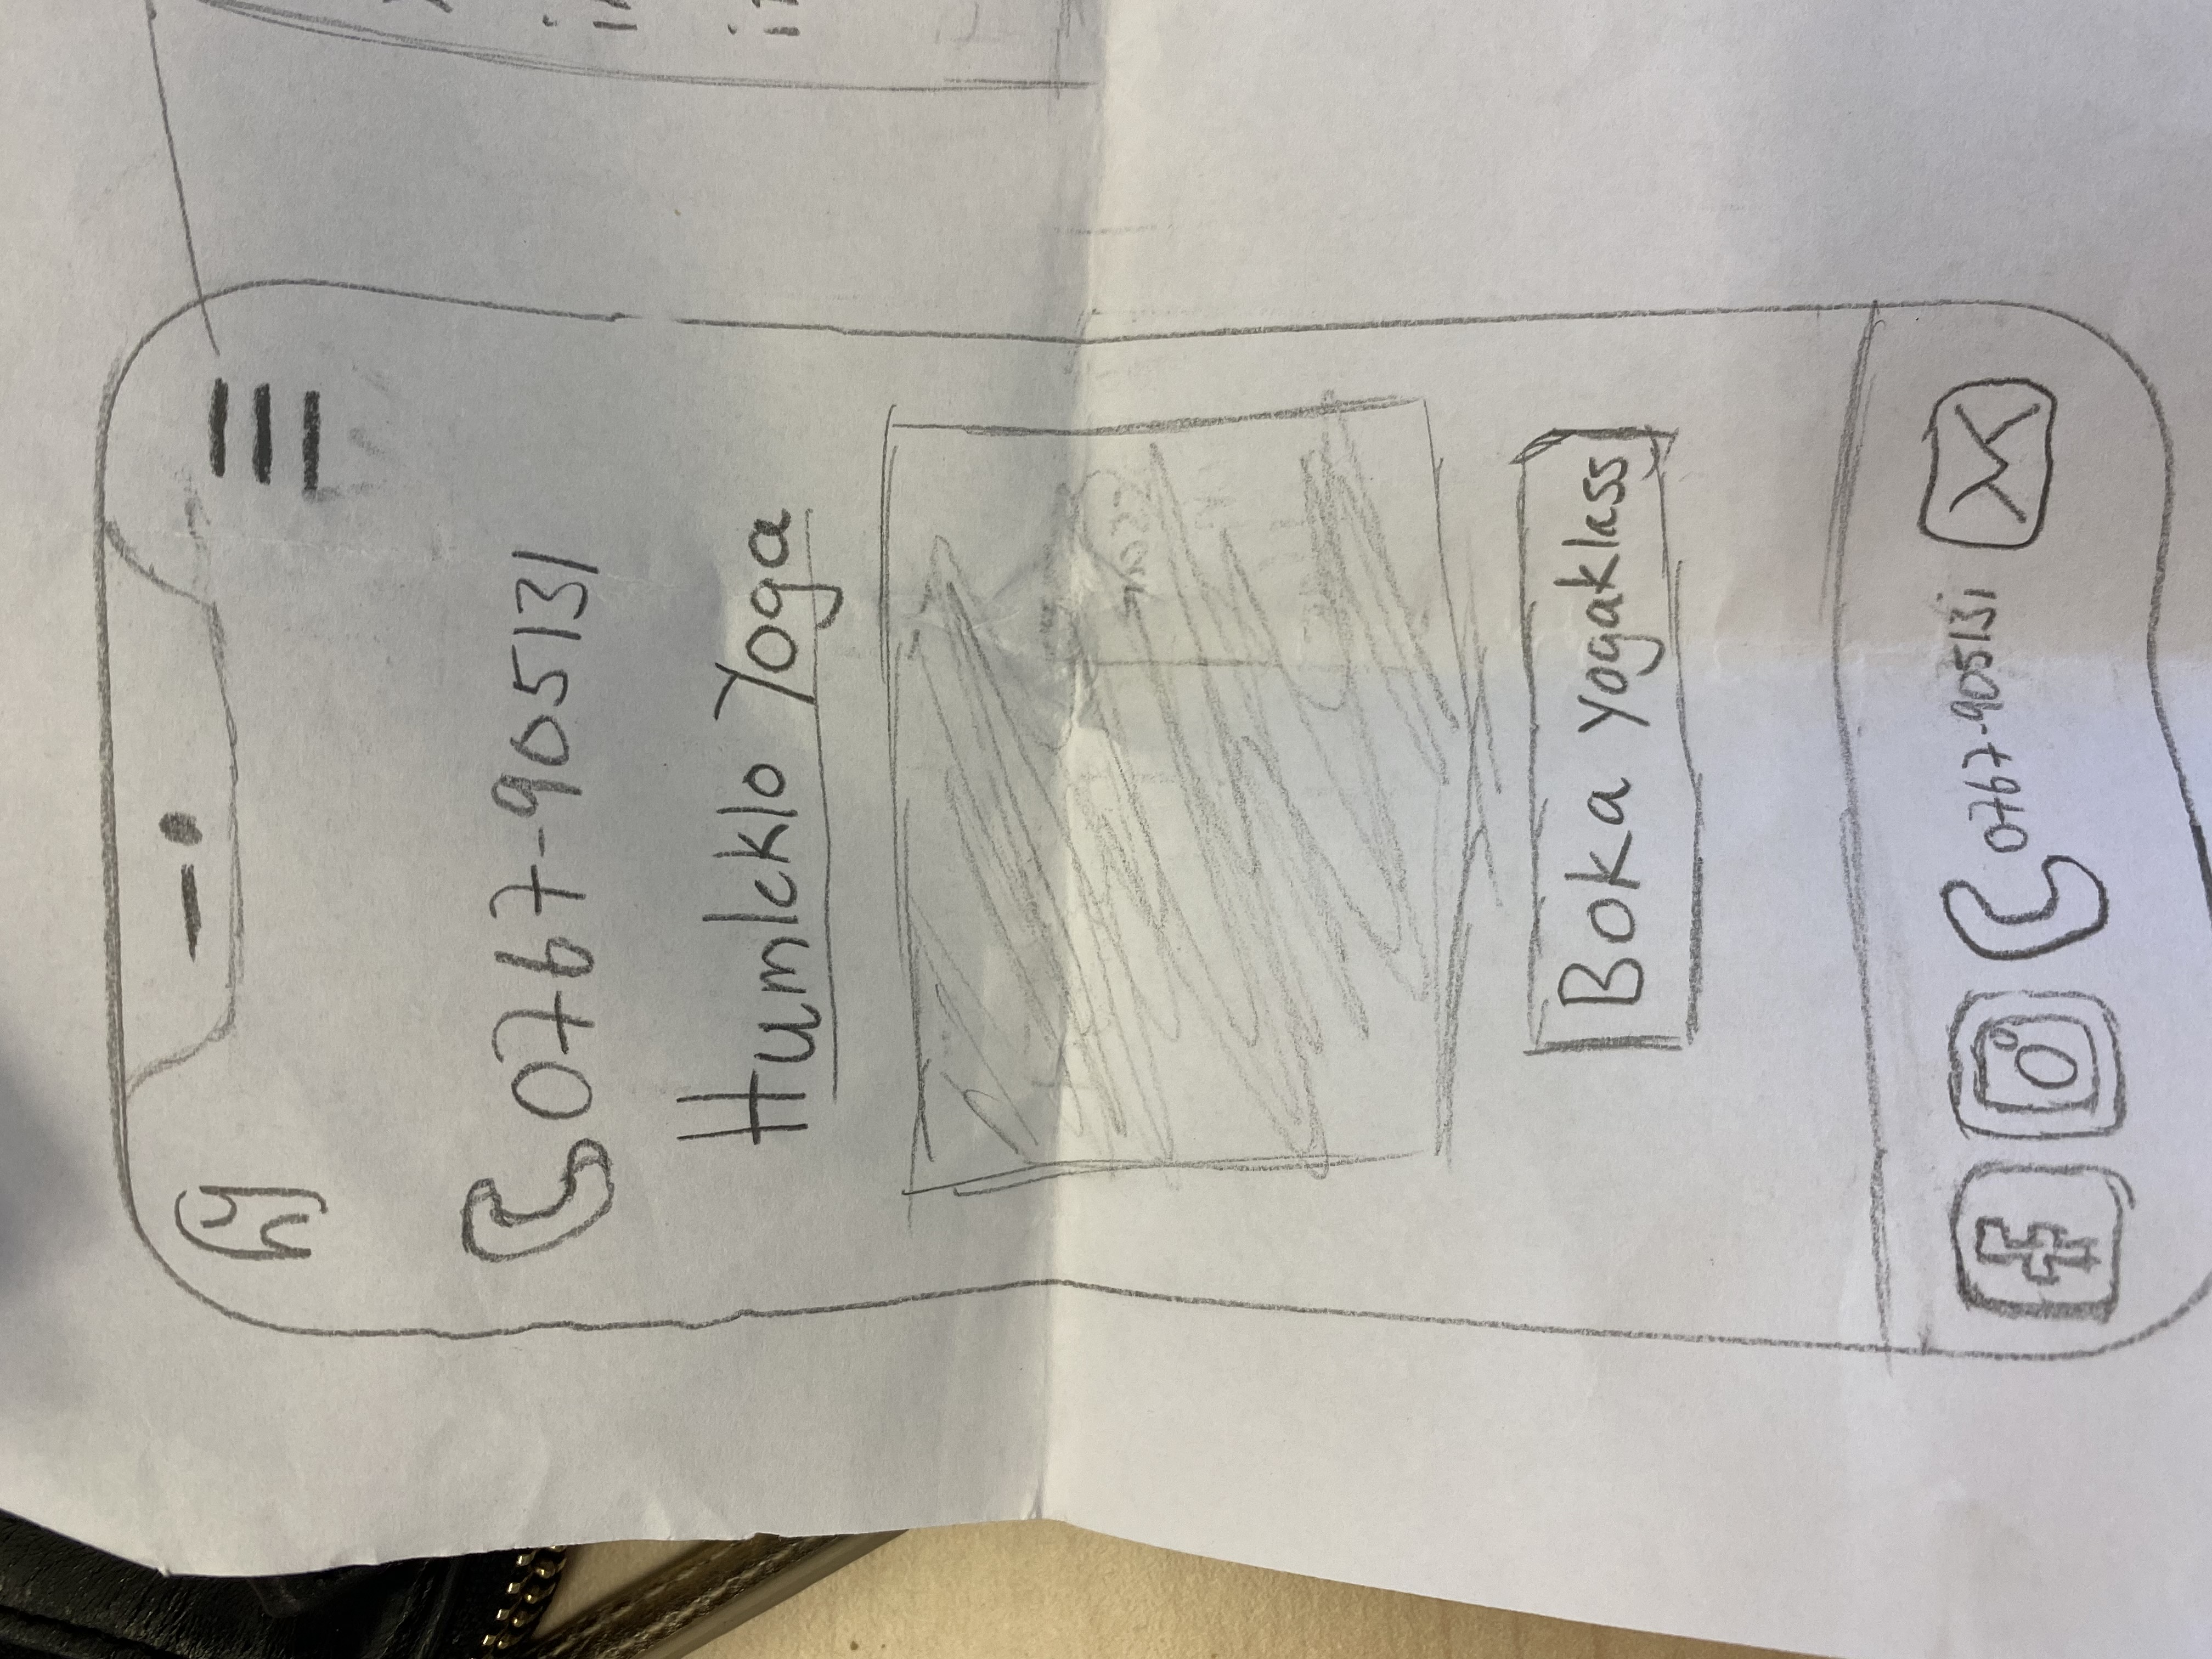 hy
0767-905131
Humlcklo Yoga
Boka yogaklass
f 0767-905131